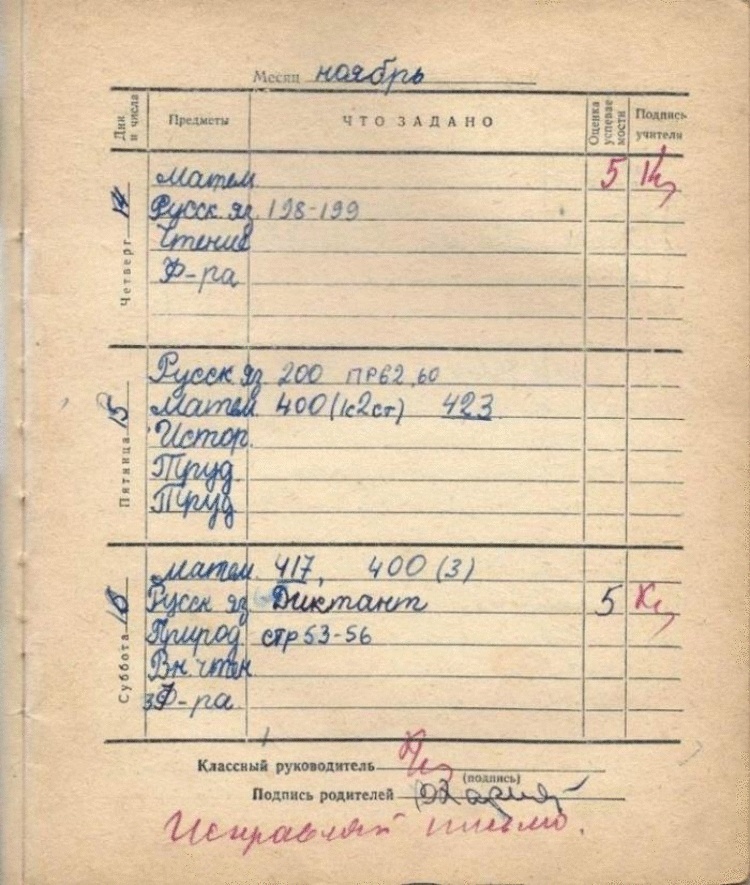 Месяц ноябрь
Дни и числа Предметы ЧТО ЗАДАНО Оценка успеваемости Подпись учителя
Четверг 14
Матем. 5
Русск яз. 198-199
Чтение
Ф-ра
Пятница 15
Русск яз 200 ПР62,60
Матем. 400 (1с2ст) 423
Истор.
Труд.
Труд
Суббота 16
Матем. 417, 400 (3)
Русск яз Диктант 5
Природ. стр 53-56
Вн. чтен
Ф-ра
Классный руководитель
(подпись)
Подпись родителей
Исправляй письмо.